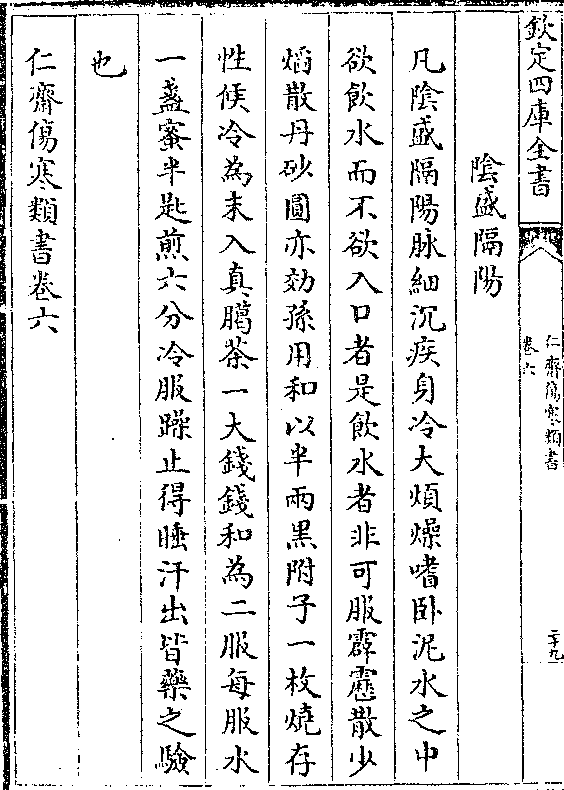 欽定四庫全書
仁齋傷寒類書
卷六
二十九
陰盛隔陽
凡陰盛隔陽脉細沉疾身冷大煩燥嗜卧泥水之中
欲飲水而不欲入口者是飲水者非可服霹靂散少
焰散丹砂圓亦効孫用和以半兩黒附子一枚燒存
性候冷為末入真臈茶一大錢錢和為二服每服水
一盞蜜半匙煎六分冷服躁止得睡汗出皆藥之驗
也
仁齋傷寒類書卷六